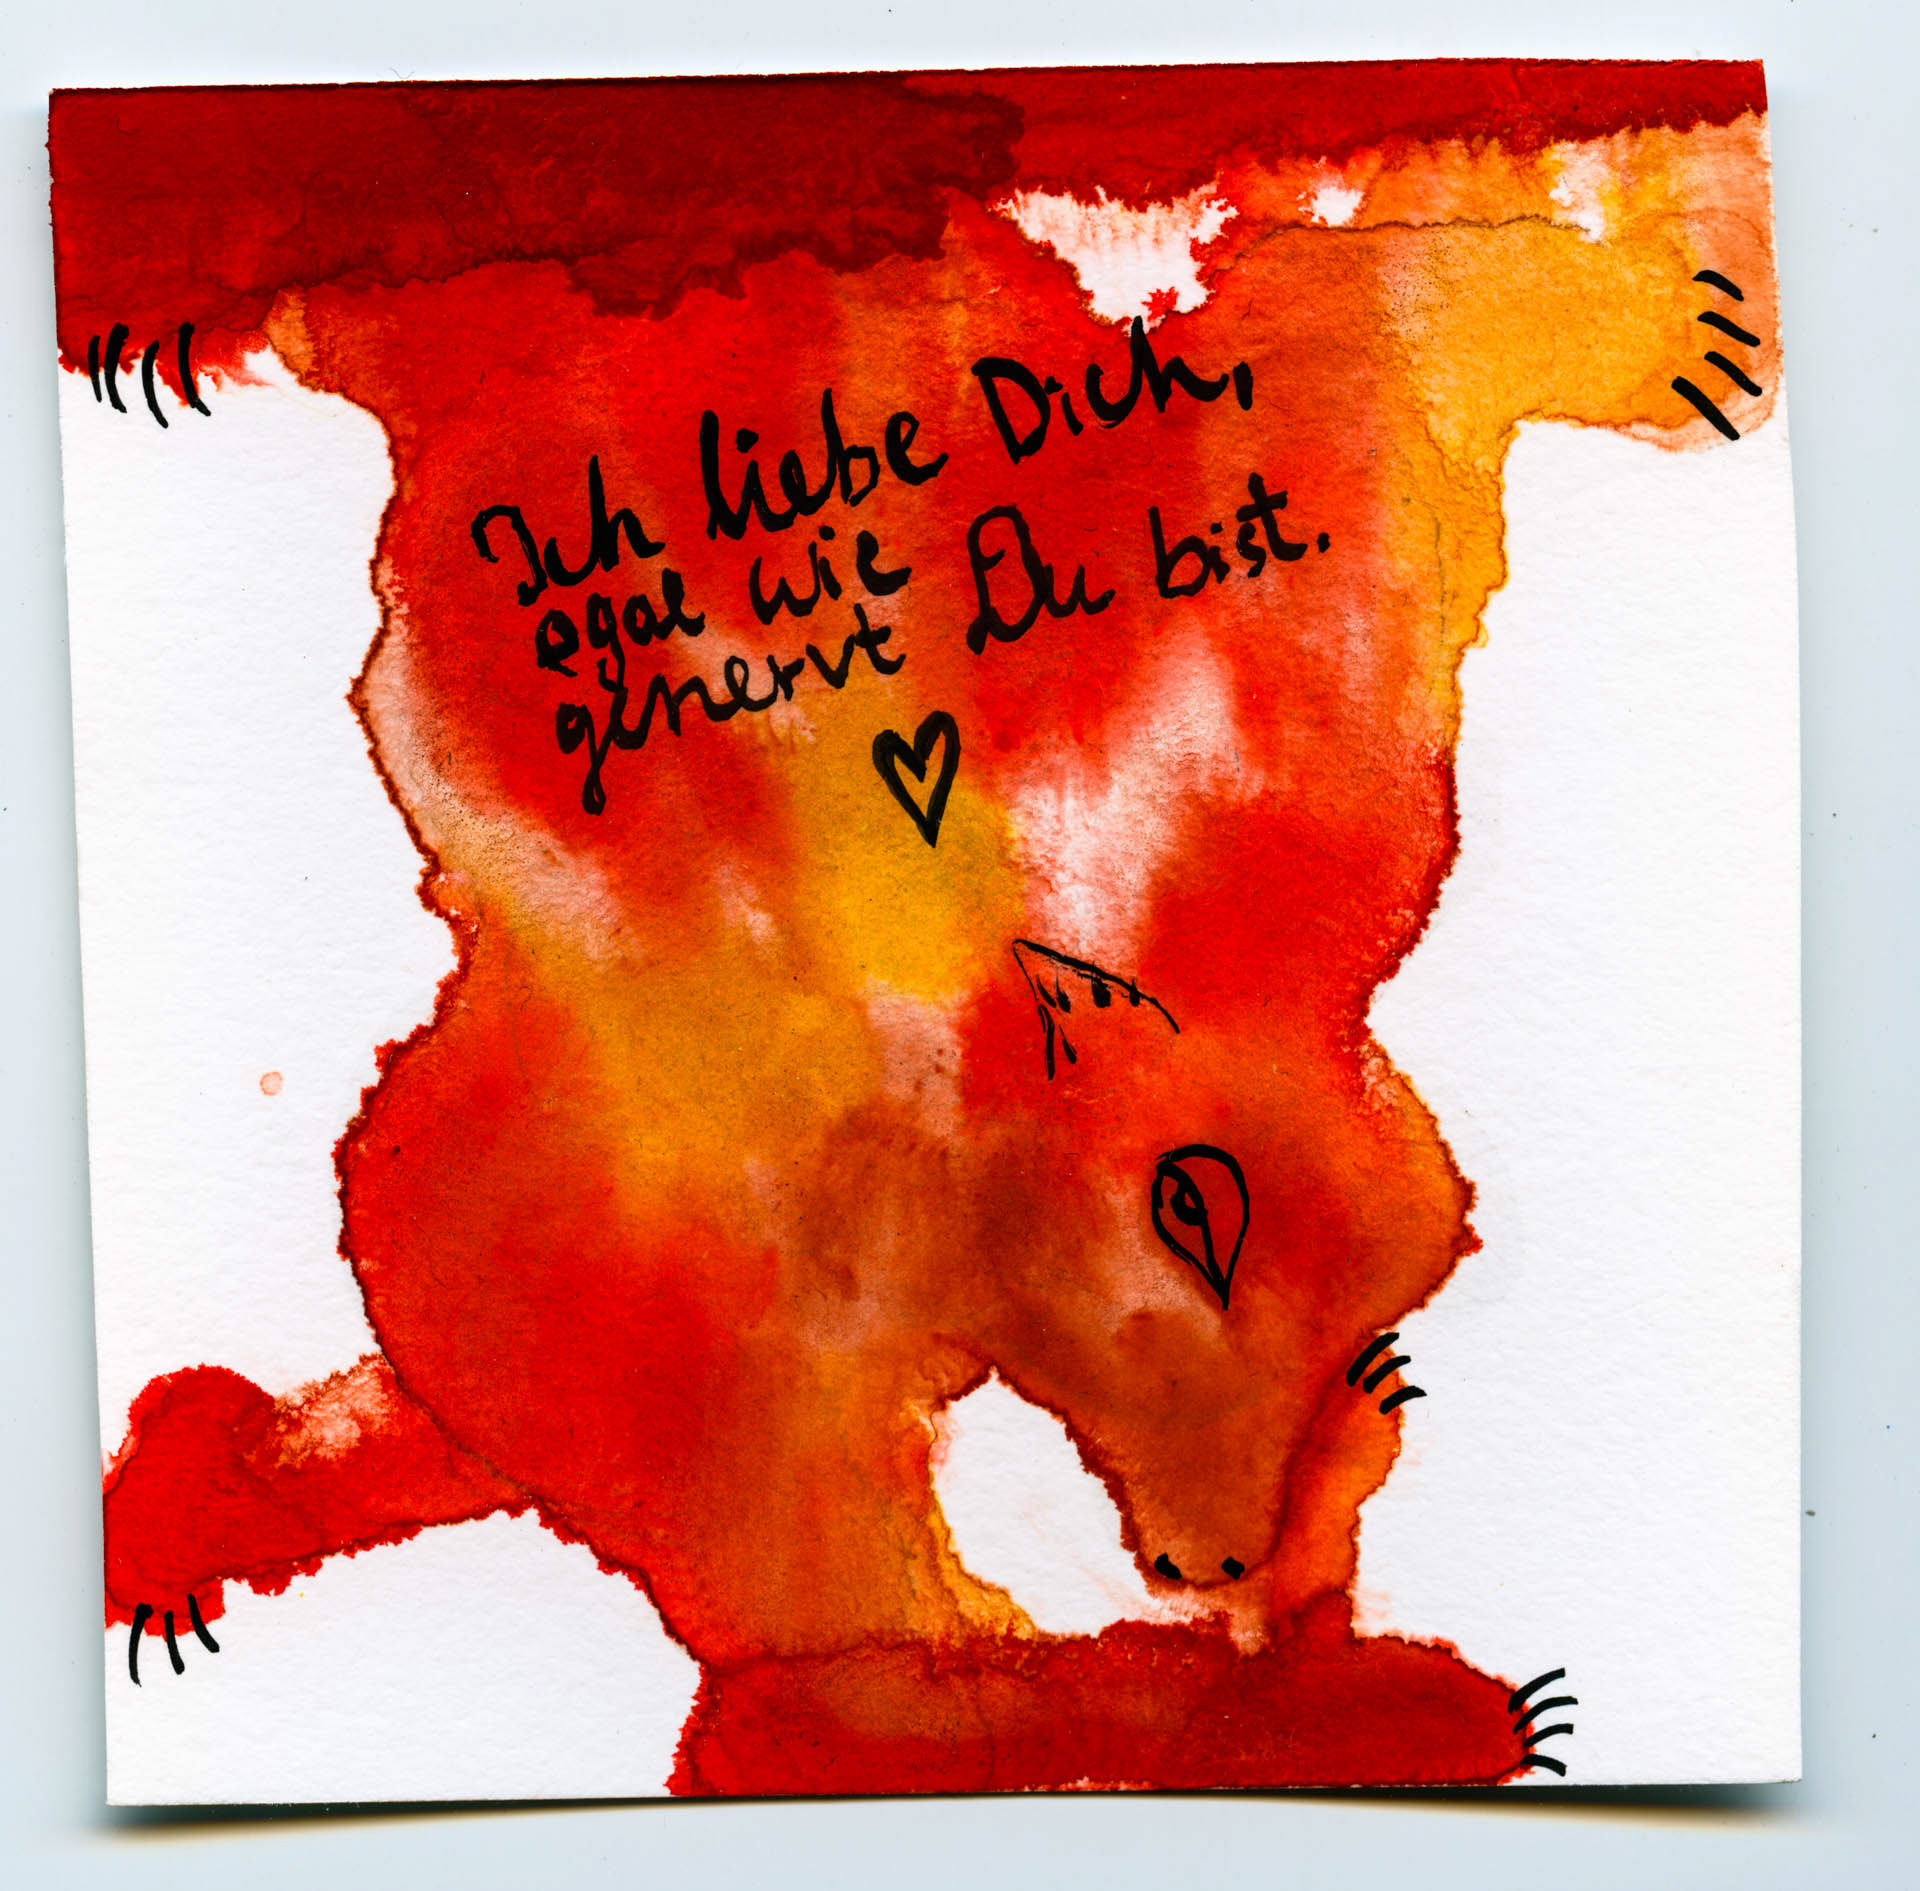 Ich liebe Dich,
egal wie
genervt Du bist.